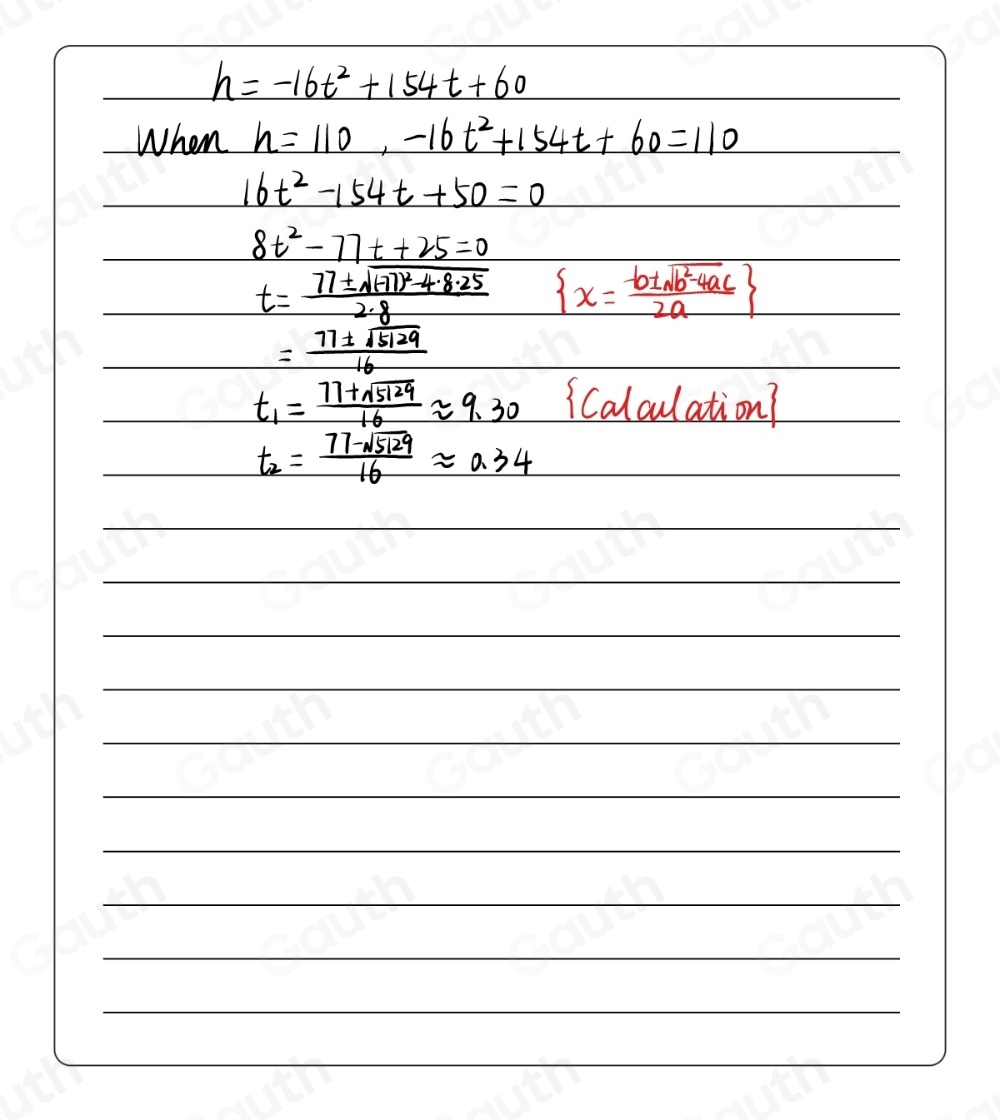 h = -16t² + 154t + 60
When h = 110 , -16t² + 154t + 60 = 110
16t² - 154t + 50 = 0
8t² - 77t + 25 = 0
t = \frac{77 ± √((-77)² - 4·8·25)}{2·8} {x = \frac{-b ± √(b² - 4ac)}{2a}}
= \frac{77 ± √5129}{16}
t₁ = \frac{77 + √5129}{16} ≈ 9.30 {Calculation}
t₂ = \frac{77 - √5129}{16} ≈ 0.34
Gauth